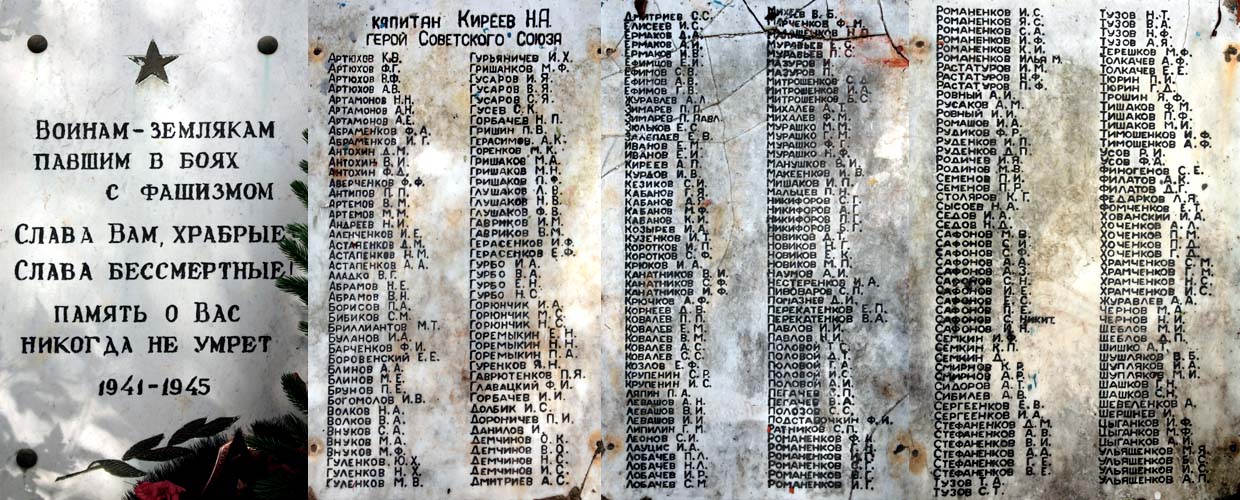 Воинам-землякам
павшим в боях
с фашизмом
Слава Вам, храбрые
Слава бессмертные!
память о Вас
никогда не умрет
1941-1945
капитан Киреев Н.А.
герой Советского Союза
Артюхов К.В.
Артюхов Ф.Г.
Артюхов В.Ф.
Артюхов А.В.
Артамонов Н.Н.
Артамонов А.Н.
Артамонов А.Е.
Абраменков Ф.А.
Абраменков И.Г.
Антохин Д.М.
Антохин В.И.
Антохин Ф.Д.
Аверченков Ф.Ф.
Антипов П.П.
Артемов В.М.
Артемов М.М.
Андреев Н.И.
Аленченков И.Е.
Астапенков Д.М.
Астапенков Н.М.
Астапенков А.А.
Аладко В.Г.
Абрамов Н.Е.
Абрамов В.Н.
Борисов П.А.
Бибиков С.М.
Бриллиантов М.Т.
Буланов И.А.
Барченков Ф.И.
Боровенский Е.Е.
Блинов А.А.
Блинов М.Е.
Брунов П.Е.
Богомолов И.В.
Волков Н.А.
Волков В.А.
Внуков С.А.
Внуков М.А.
Внуков М.Ф.
Гуленков Ю.Х.
Гуленков Н.Х.
Гуленков М.В.
Гурьяничев И.Х.
Гришанков М.Ф.
Гусаров И.Я.
Гусаров В.Я.
Гусаров С.Я.
Гусев С.К.
Горбачев Н.П.
Гришин П.В.
Герасимов А.К.
Горенков М.К.
Гришаков М.А.
Гришаков М.Н.
Гришаков П.Ф.
Глушаков Л.В.
Глушаков Н.В.
Глушаков Ф.В.
Гавриков И.М.
Гавриков В.М.
Герасенков И.Ф.
Герасенков Е.Ф.
Гурбо И.А.
Гурбо В.А.
Гурбо Е.Н.
Гурбо Н.С.
Горюнчик И.А.
Горюнчик М.С.
Горюнчик Н.С.
Горемыкин Е.Н.
Горемыкин Н.Н.
Горемыкин П.А.
Гуренков Я.Н.
Гаврютенков П.Я.
Главацкий Ф.И.
Горбачев И.И.
Долбик И.С.
Дороничев П.И.
Данилов И.
Демчинов О.К.
Демчинов В.О.
Демчинов Н.С.
Демчинов И.С.
Дмитриев А.С.
Дмитриев С.С.
Елисеев И.С.
Ермаков Д.А.
Ермаков А.И.
Ермаков И.В.
Ефимцов Е.И.
Ефимов С.В.
Ефимов А.В.
Ефимов Г.В.
Журавлев А.Л.
Зимарев П.П.
Зимарев П. Павл.
Зюльков Е.С.
Залепаев Е.В.
Иванов Е.М.
Иванов Е.И.
Киреев А.П.
Курдов И.В.
Кезиков С.И.
Кабанов Г.Я.
Кабанов А.Я.
Кабанов М.Ф.
Кабанов К.И.
Козырев И.А.
Кузенков И.А.
Коротков И.П.
Коротков С.Ф.
Крюков И.А.
Канатников В.И.
Канатников С.Ф.
Канатников И.Ф.
Крючков А.Ф.
Корнеев Д.В.
Ковалев П.П.
Ковалев Е.М.
Ковалев В.М.
Ковалев А.С.
Ковалев С.С.
Козлов Е.Ф.
Крупенин С.Р.
Крупенин И.С.
Ляпин П.А.
Левашов А.Н.
Левашов В.И.
Липилин Г.М.
Леонов С.И.
Лауцис И.А.
Лобачев П.Л.
Лобачев Н.Л.
Лобачев И.Р.
Лобачев С.М.
В.Б.
Марченков Ф.М.
Н.О.
Муравьев Е.С.
Муравьев П.С.
Мазуров И.
Мазуров П.
Митрошенков С.Д.
Митрошенков И.А.
Митрошенков Б.С.
Михалев Ф.М.
Мурашко М.М.
Мурашко Г.М.
Мурашко Н.Ф.
Манушков В.И.
Макеенков И.В.
Мишаков И.П.
Мальцев П.Н.
Никифоров С.Г.
Никифоров А.Г.
Никифоров П.Г.
Никифоров Б.Г.
Новиков Д.И.
Новиков Н.Г.
Новиков Е.К.
Новиков М.П.
Наумов А.И.
Нестеренков И.А.
Пивоваров С.П.
Помазнев Д.И.
Перекатенков Е.П.
Перекатенков В.А.
Павлов И.И.
Павлов Н.И.
Половой Т.С.
Половой Д.Т.
Половой Г.А.
Половой И.С.
Половой Д.И.
Пегачев А.И.
Пегачев В.А.
Полозов С.С.
Подставочкин Ф.И.
Ратников С.П.
Романенков Ф.И.
Романенков Н.А.
Романенков Р.С.
Романенков С.Г.
Романенков В.Г.
Романенков И.Г.
Романенков И.С.
Романенков Я.С.
Романенков С.А.
Романенков К.И.
Романенков И.И.
Романенков Илья М.
Растатуров И.М.
Растатуров Н.Ф.
Растатуров П.Ф.
Ровный А.И.
Русаков А.М.
Ровный И.И.
Ромашов И.А.
Рудиков Ф.Р.
Руденков П.И.
Руденков Д.П.
Родичев И.Я.
Родинов М.В.
Семенов П.И.
Семенов П.Р.
Столяров К.Г.
Сысоев Н.А.
Седов И.А.
Седов Н.Д.
Сафонов М.В.
Сафонов С.И.
Сафонов Д.Ф.
Сафонов А.А.
Сафонов А.З.
Сафонов С.И.
Сафонов Н.Е.
Сафонов Е.С.
Сафонов П.Е.
Сафонов С. Никит.
Сафонов И.Н.
Семкин И.Ф.
Семкин К.П.
Семкин Д.
Смирнов К.Р.
Смирнов А.Р.
Сидоров А.Т.
Сибилев А.В.
Сергеенков Е.В.
Сергеенков И.А.
Стефаненков Д.М.
Стефаненков А.В.
Стефаненков А.А.
Стефаненков Г.Е.
Стефаненков В.Е.
Тузов Т.Д.
Тузов С.Т.
Тузов Н.Т.
Тузов В.А.
Тузов Н.Ф.
Тузов А.Я.
Терешков М.Ф.
Толкачев А.Ф.
Толкачев Е.Е.
Тюрин П.И.
Тюрин Г.Д.
Трошин Я.Ф.
Тишаков Ф.М.
Тишаков П.Ф.
Тишаков М.И.
Тимошенков И.Ф.
Тимошенков А.Ф.
Усов Р.И.
Усов Ф.Д.
Финогенов С.Е.
Филатов А.К.
Филатов Д.Г.
Федарков Л.Я.
Фомченков Е.Г.
Хованский И.А.
Хоченков А.Л.
Хоченков Г.Д.
Хоченков П.Д.
Хоченков Д.П.
Храмченков С.М.
Храмченков Г.М.
Храмченков Н.Н.
Журавлев А.А.
Чернов М.А.
Чернов М.И.
Шеблов Д.И.
Шеблов М.П.
Шишко А.Г.
Шушляков В.Б.
Шупляков И.А.
Шупляков М.И.
Шашков Г.Н.
Шашков С.И.
Шевеленков А.
Шершнев И.
Цыганков М.Ф.
Цыганков М.Г.
Цыганков А.И.
Ульяшенков М.Я.
Ульяшенков В.С.
Ульяшенков И.С.
Ульяшенков А.П.